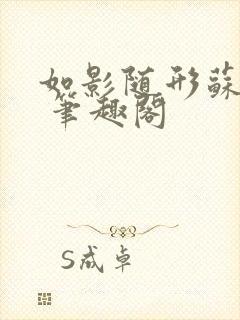 如影随形蘇
笔趣阁
S成卓